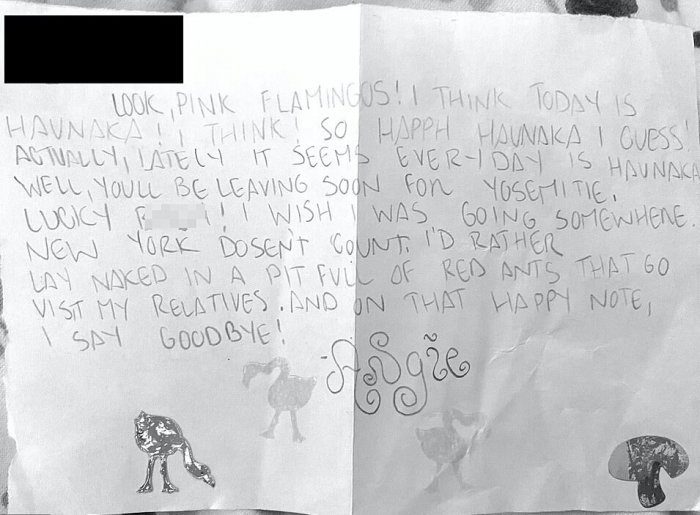 LOOK, PINK FLAMINGOS! I THINK TODAY IS
HAUNAKA! I THINK! SO HAPPH HAUNAKA I GUESS!
ACTUALLY, LATELY IT SEEMS EVERYDAY IS HAUNAKA
WELL, YOULL BE LEAVING SOON FOR YOSEMITIE.
LUCKY ! I WISH I WAS GOING SOMEWHERE.
NEW YORK DOSENT COUNT. I'D RATHER
LAY NAKED IN A PIT FULL OF RED ANTS THAT GO
VISIT MY RELATIVES. AND ON THAT HAPPY NOTE,
I SAY GOODBYE!
Angie